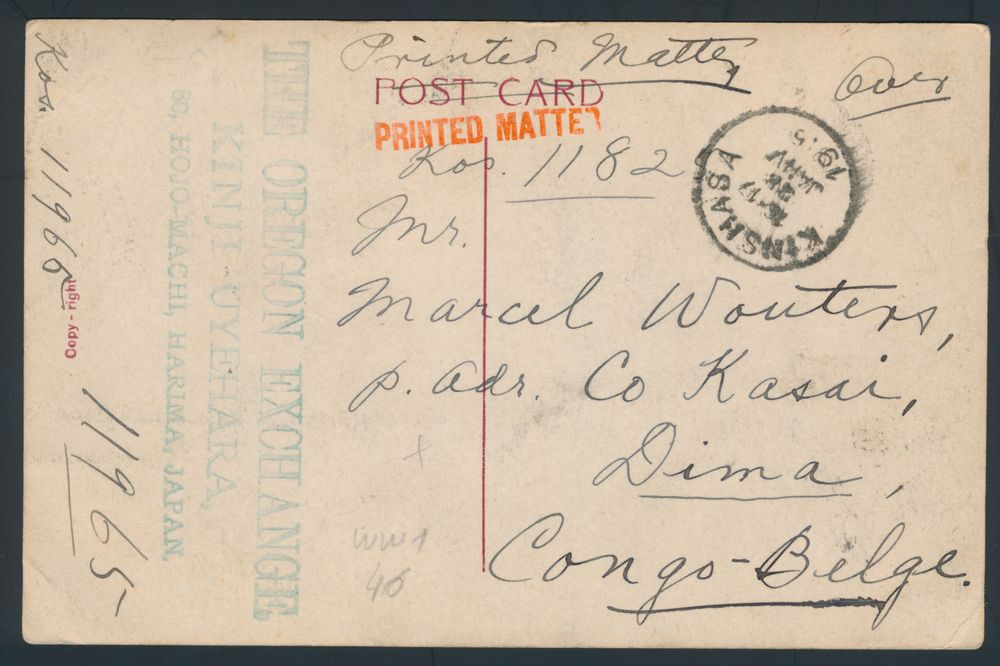 Printed Matter
Over
POST CARD
PRINTED MATTER
Kos. 1182
Mr.
Marcel Wouters,
p. adr. Co Kasai,
Dima,
Congo-Belge.
KINSHASA
JANV
THE OREGON EXCHANGE
KINJI UYEHARA,
80, HO.O-MACHI, HARIMA, JAPAN.
Kos. 11965
Copy-right
11965
WW1